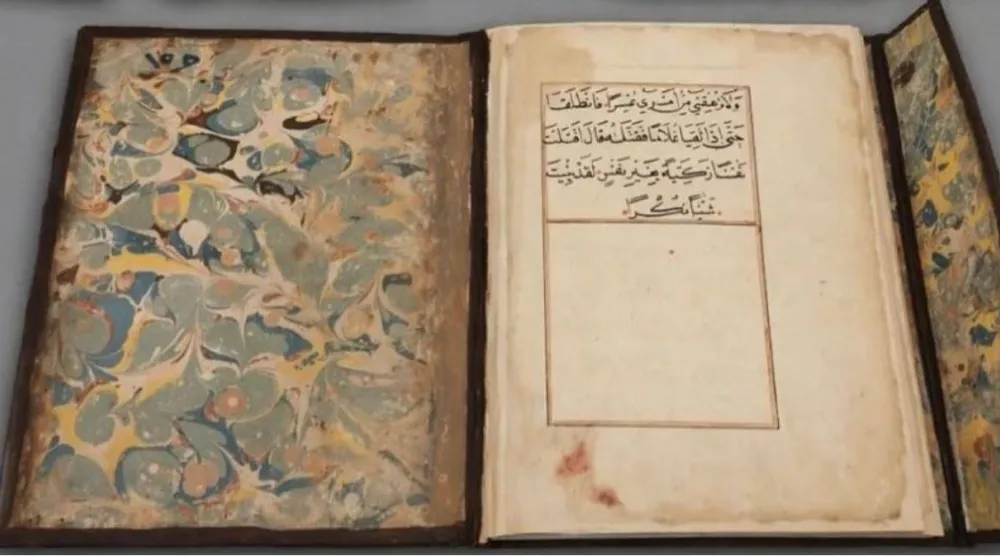 وَلَا تُرْهِقْنِي مِنْ اَمْرِي عُسْرًا فَانْطَلَقَا
حَتَّى اِذَا لَقِيَا غُلَامًا فَقَتَلَهُ قَالَ اَقَتَلْتَ
نَفْسًا زَكِيَّةً بِغَيْرِ نَفْسٍ لَقَدْ جِئْتَ
شَيْئًا نُكْرًا